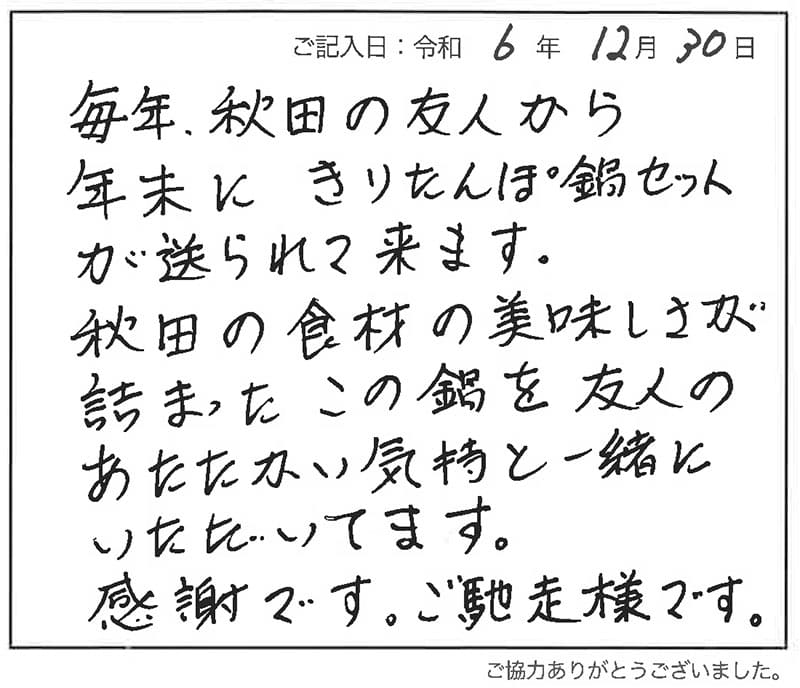 ご記入日：令和 6 年 12月 30日
毎年、秋田の友人から
年末に きりたんぽ鍋セット
が送られて来ます。
秋田の食材の美味しさが
詰まった この鍋を 友人の
あたたかい気持と一緒に
いただいてます。
感謝です。ご馳走様です。
ご協力ありがとうございました。